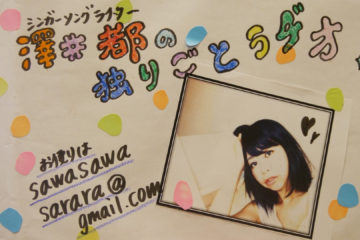 シンガーソングライター
澤井都の
独りごとラヂオ
お便りは
sawasawa
sarara@
gmail.com